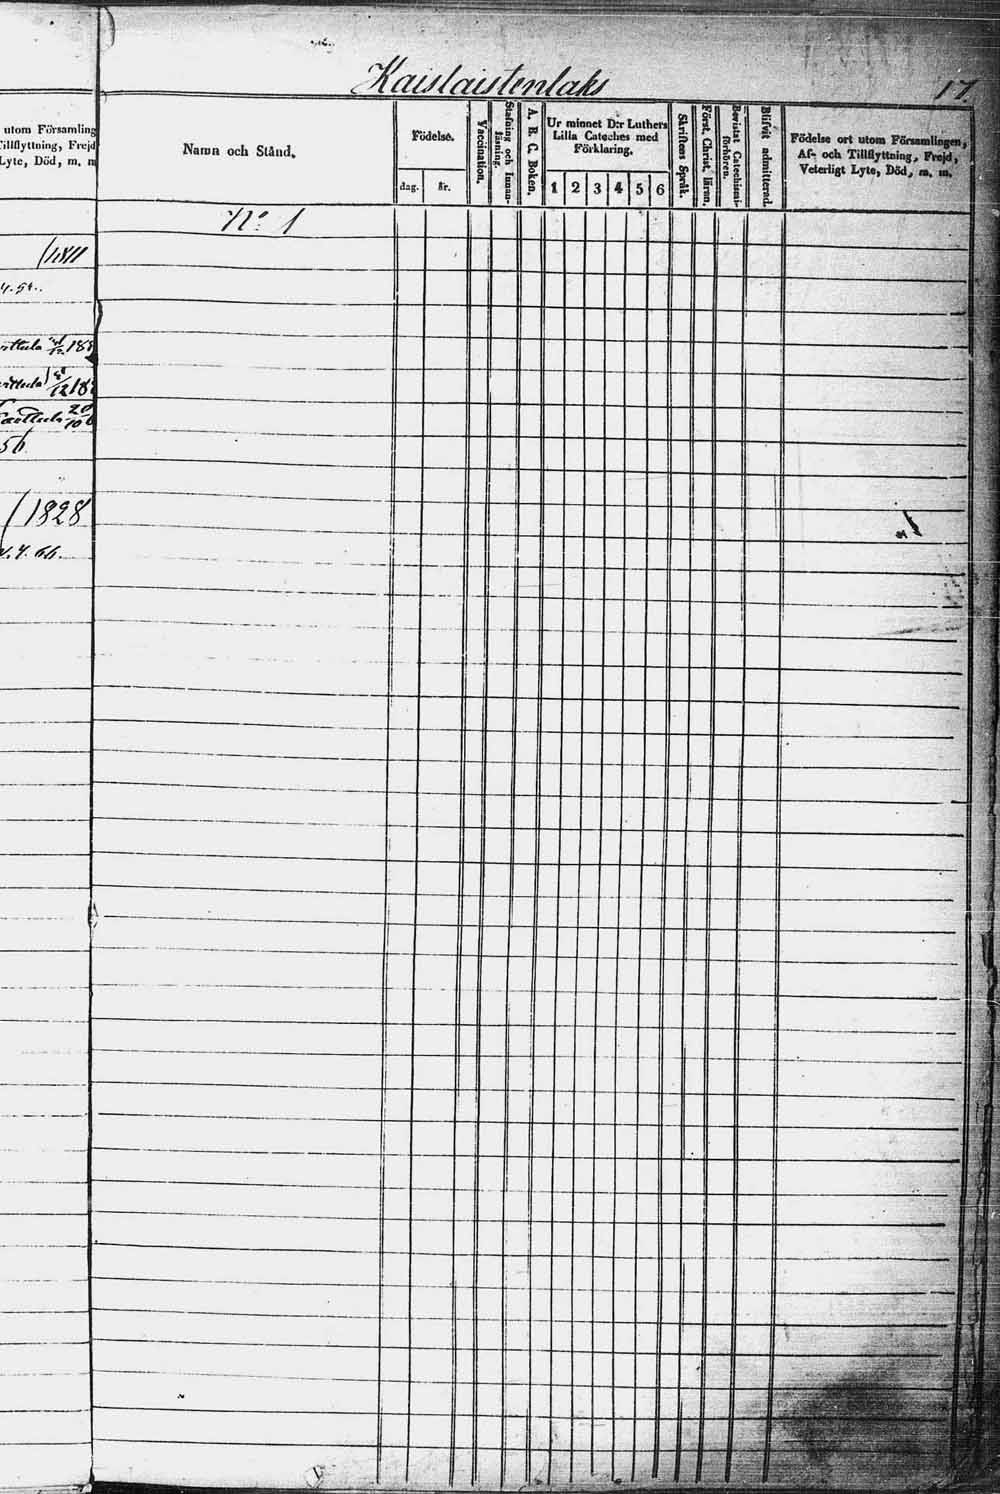 Kaislaistenlaks
17.
utom Församling
Tillflyttning, Frejd
Lyte, Död, m. m
Namn och Stånd.
Födelse.
dag. år.
Vaccination.
Stafning och Innan-
läsning.
A. B. C. Boken.
Ur minnet D:r Luthers
Lilla Cateches med
Förklaring.
1 2 3 4 5 6
Skriftens Språk.
Först. Christ. läran.
Bevistat Catechismi-
förhören.
Blifvit admitterad.
Födelse ort utom Församlingen,
Af- och Tillflyttning, Frejd,
Veterligt Lyte, Död, m. m.
No 1
1811
56
1828
4. 66.